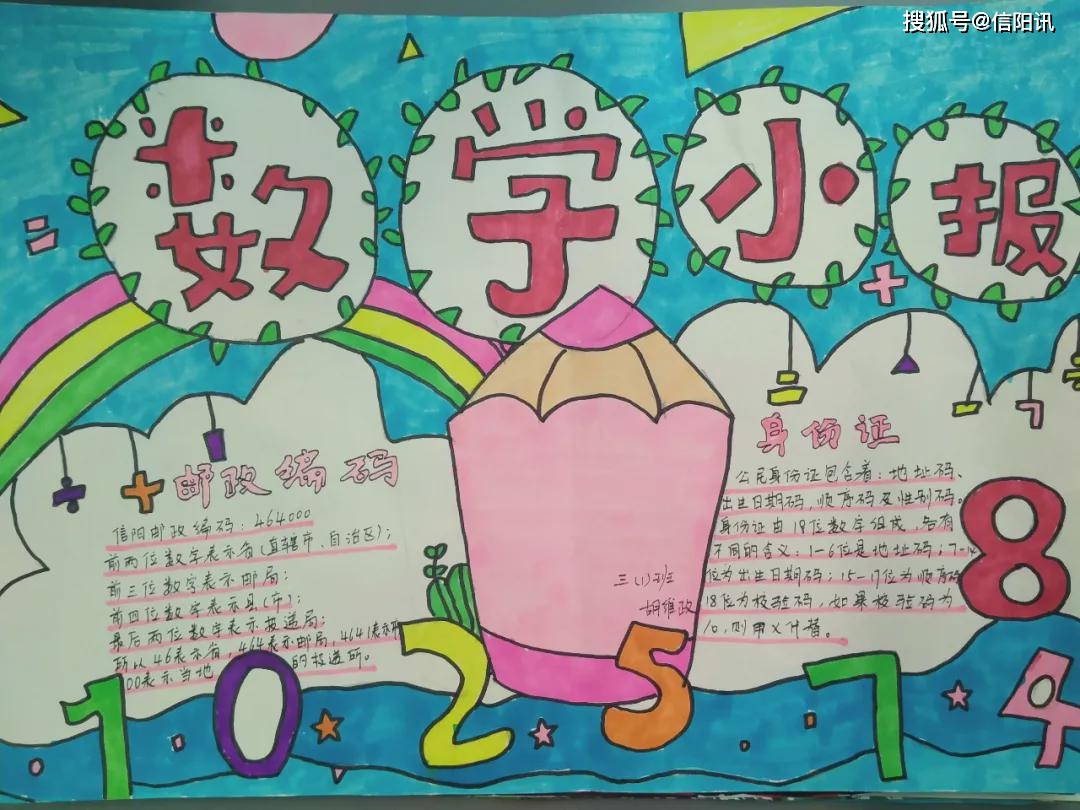 搜狐号@信阳讯
数学小报
邮政编码
信阳邮政编码：464000
前两位数字表示省(直辖市、自治区)；
前三位数字表示邮局；
前四位数字表示县(市)；
最后两位数字表示投递局；
所以46表示省，464表示邮局，4641表示
00表示当地 的投递所。
三(1)班
胡维政
身份证
公民身份证包含着：地址码、
出生日期码，顺序码及性别码。
身份证由18位数字组成，各有
不同的含义：1-6位是地址码；7-14
位为出生日期码；15-17位为顺序码
18位为校验码，如果校验码为
10，则用X代替。
8
1 0 2 5 7 4